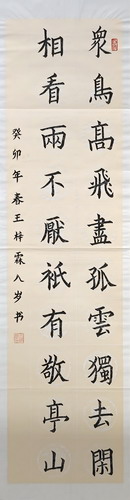 眾鳥高飛盡孤雲獨去閑
相看兩不厭祇有敬亭山
癸卯年春王梓霖八岁书